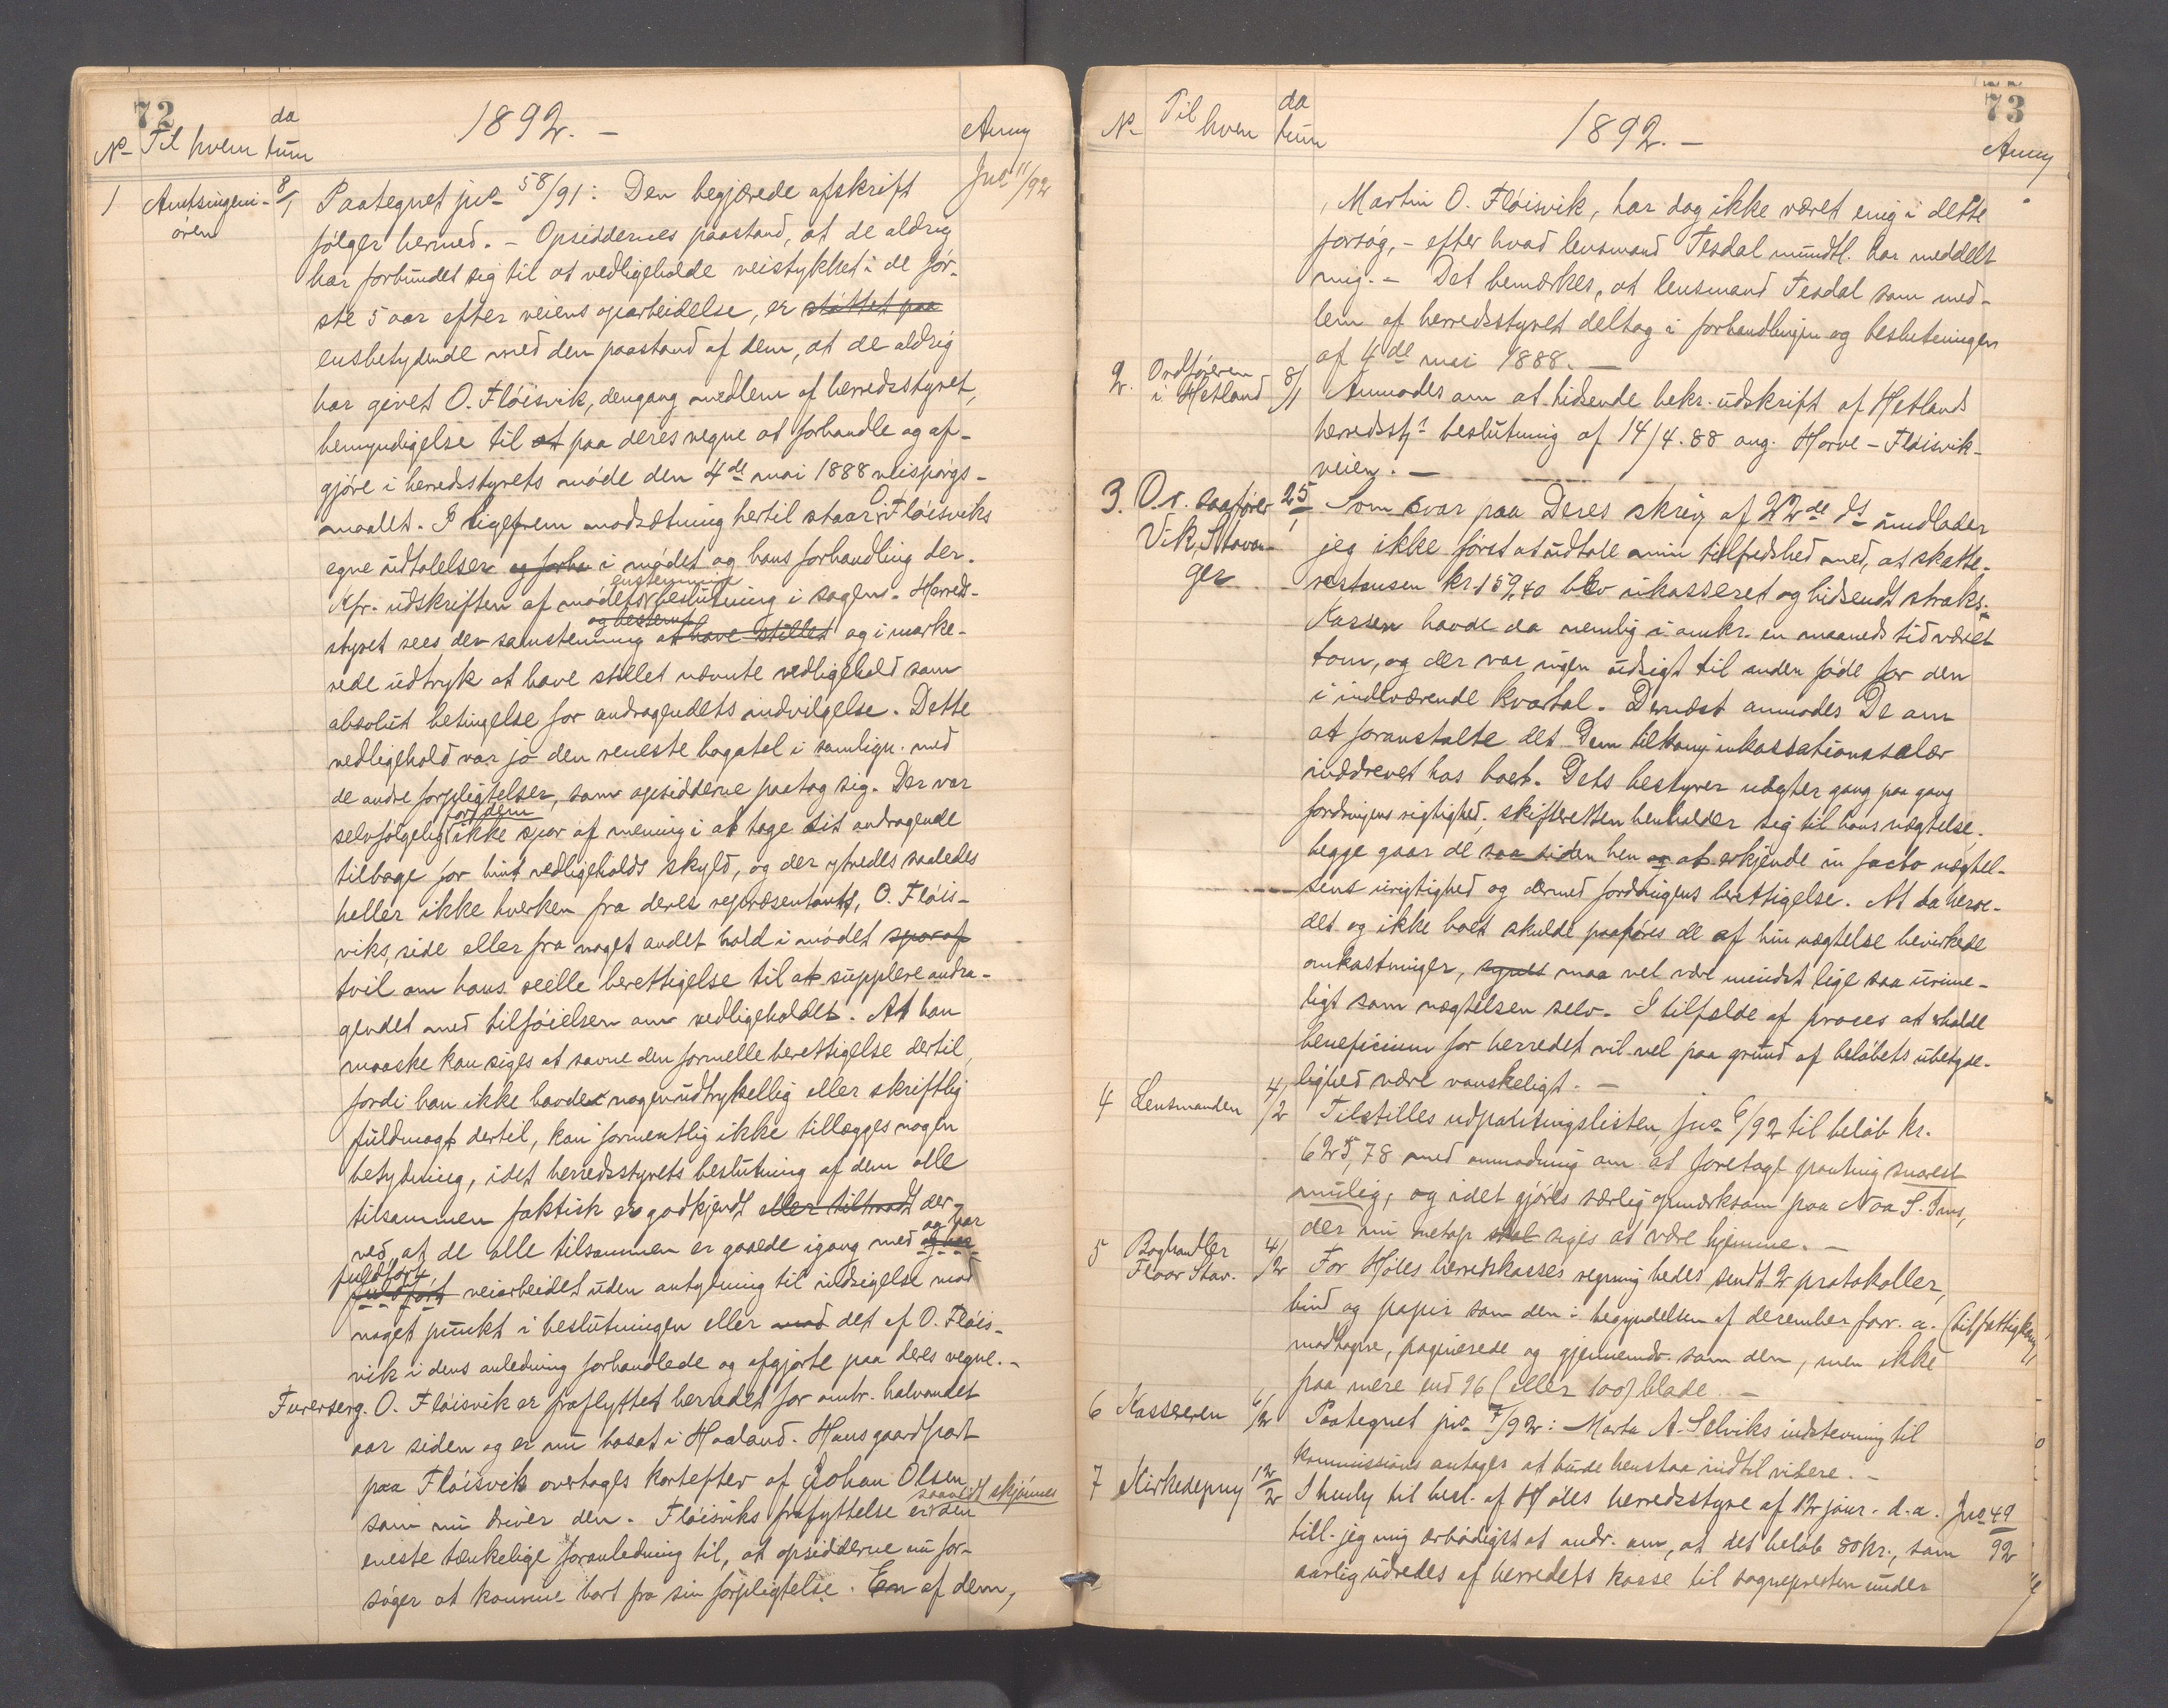 72
1892. —
No Til hvem da tum Anm
1 Amtsingeni- øren 8/1 Paategnet jno 58/91: Den begjærede afskrift Jno 11/92
følger hermed. – Opsiddernes paastand, at de aldrig
har forbundet sig til at vedligeholde veistykket i de før-
ste 5 aar efter veiens oparbeidelse, er støttet paa
ensbetydende med den paastand af dem, at de aldrig
har givet O. Fløisvik, dengang medlem af herredsstyret,
bemyndigelse til at paa deres vegne at forhandle og af-
gjøre i herredsstyrets møde den 4de mai 1888 veispørgs-
maalet. I ligefrem modsætning hertil staar O. Fløisviks
egne udtalelser og forha i mødet og hans forhandling der.
Kfr. udskriften af mødets enstemmige beslutning i sagen. Herreds-
styret sees der samstemmig og bestemt at have stillet og i marke-
rede udtryk at have stillet nævnte vedligehold som
absolut betingelse for andragendets indvilgelse. Dette
vedligehold var jo den reneste bagatel i samlign. med
de andre forpligtelser, som opsidderne paatog sig. Der var
selvfølgelig for dem ikke spor af mening i at tage sit andragende
tilbage for hint vedligeholds skyld, og der ytredes saaledes
heller ikke hverken fra deres repræsentants, O. Fløis-
viks, side eller fra noget andet hold i mødet spor af
tvil om hans reelle berettigelse til at supplere andra-
gendet med tilføielsen om vedligeholdet. At han
maaske kan siges at savne den formelle berettigelse dertil,
fordi han ikke havde nogen udtrykkellig eller skriftlig
fuldmagt dertil, kan formentlig ikke tillægges nogen
betydning, idet herredsstyrets beslutning af dem alle
tilsammen faktisk er godkjendt eller tiltraadt der-
ved, at de alle tilsammen er gaaede igang med og har og har
fuldført fuldført veiarbeidet uden antydning til indsigelse mod
noget punkt i beslutningen eller mod det af O. Fløis-
vik i dens anledning forhandlede og afgjorte paa deres vegne. –
Forresten O. Fløisvik er fraflyttet herredet for omtr. halvandet
aar siden og er nu bosat i Haaland. Hans gaardpart
paa Fløisvik overtoges kortefter af Johan Olsen
som nu driver den. Fløisviks fraflyttelse er saavidt skjønnes den
eneste tænkelige foranledning til, at opsidderne nu for-
søger at komme bort fra sin forpligtelse. En af dem,
73
1892. —
No Til hvem da tum Anm
Martin O. Fløisvik, har dog ikke været enig i dette
forsøg, – efter hvad lensmand Tesdal mundtl. har meddelt
mig. – Det bemærkes, at lensmand Tesdal som med-
lem af herredsstyret deltog i forhandlingen og beslutningen
af 4de mai 1888. —
2. Ordføreren i Hetland 8/1 Anmodes om at hidsende bekr. udskrift af Hetlands
herredsst. beslutning af 14/4. 88 ang. Horve – Fløisvik-
veien. —
3. O.r. sagfører Vik, Stavan- ger 25/1 Som svar paa Deres skriv. af 22de ds undlader
jeg ikke først at udtale min tilfredshed med, at skatte-
restansen kr. 159,40 blev inkasseret og hidsendt straks.
Kassen havde da nemlig i omkr. en maaneds tid været
tom, og der var ingen udsigt til anden føde for den
i indeværende kvartal. Dernæst anmodes De om
at foranstalte det Dem tilkom. inkassationssalær
inddrevet hos boet. Dets bestyrer nægter gang paa gang
fordringens rigtighed; skifteretten henholder sig til hans nægtelse.
begge gaar de saa siden hen og at erkjende in facto nægtel-
sens urigtighed og dermed fordringens berettigelse. At da herre-
det og ikke boet skulde paaføres de af hin nægtelse bevirkede
omkostninger, synes maa vel være mindst lige saa urime-
ligt som nægtelsen selv. I tilfælde af proces at erholde
beneficium for herredet vil vel paa grund af beløbets ubetyde-
lighed være vanskeligt. —
4 Lensmanden 4/2 Tilstilles udpantningslisten, jno 6/92 til beløb kr.
625,78 med anmodning om at foretage pantning snarest
mulig, og idet gjøres særlig opmærksom paa Noa S. Ims,
der nu netop skal siges at være hjemme. —
5 Boghandler Floor Stav. 4/2 For Høles herredskasses regning bedes sendt 2 protokoller,
bind og papir som den i begyndelsen af desember forr. a. (til fattigkom.)
modtagne, paginerede og gjennemdr. som den, men ikke
paa mere end 96 (eller 100) blade. —
6 Kassereren 6/2 Paategnet jno 7/92: Marta A. Selviks indstevning til
kommissions antages at burde henstaa indtil videre. –
7 Kirkedepny 12/2 I henh. til besl. af Høles herredsstyre af 12 janr. d.a. Jno 49/92
till. jeg mig ærbødigst at andr. om, at det beløb 80 kr., som
aarlig udredes af herredets kasse til sognepresten under